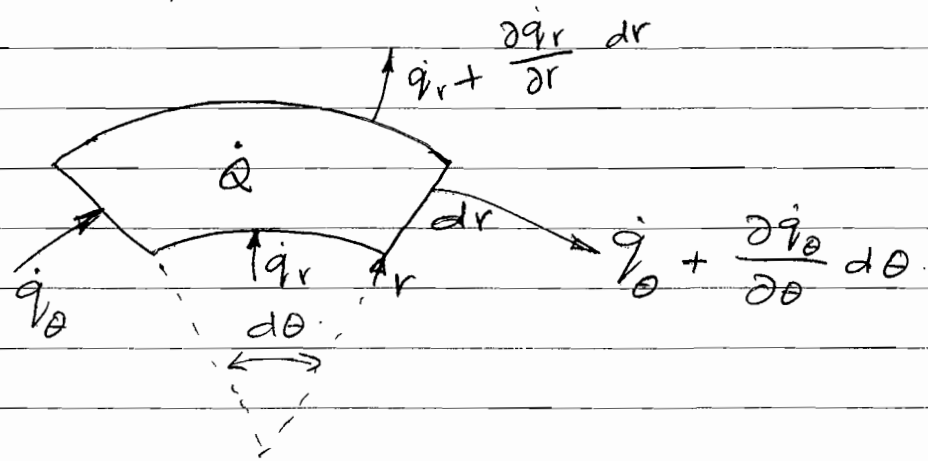 q̇_r + ∂q̇_r/∂r dr
Q̇
dr
q̇_θ + ∂q̇_θ/∂θ dθ.
q̇_r
r
q̇_θ
dθ.